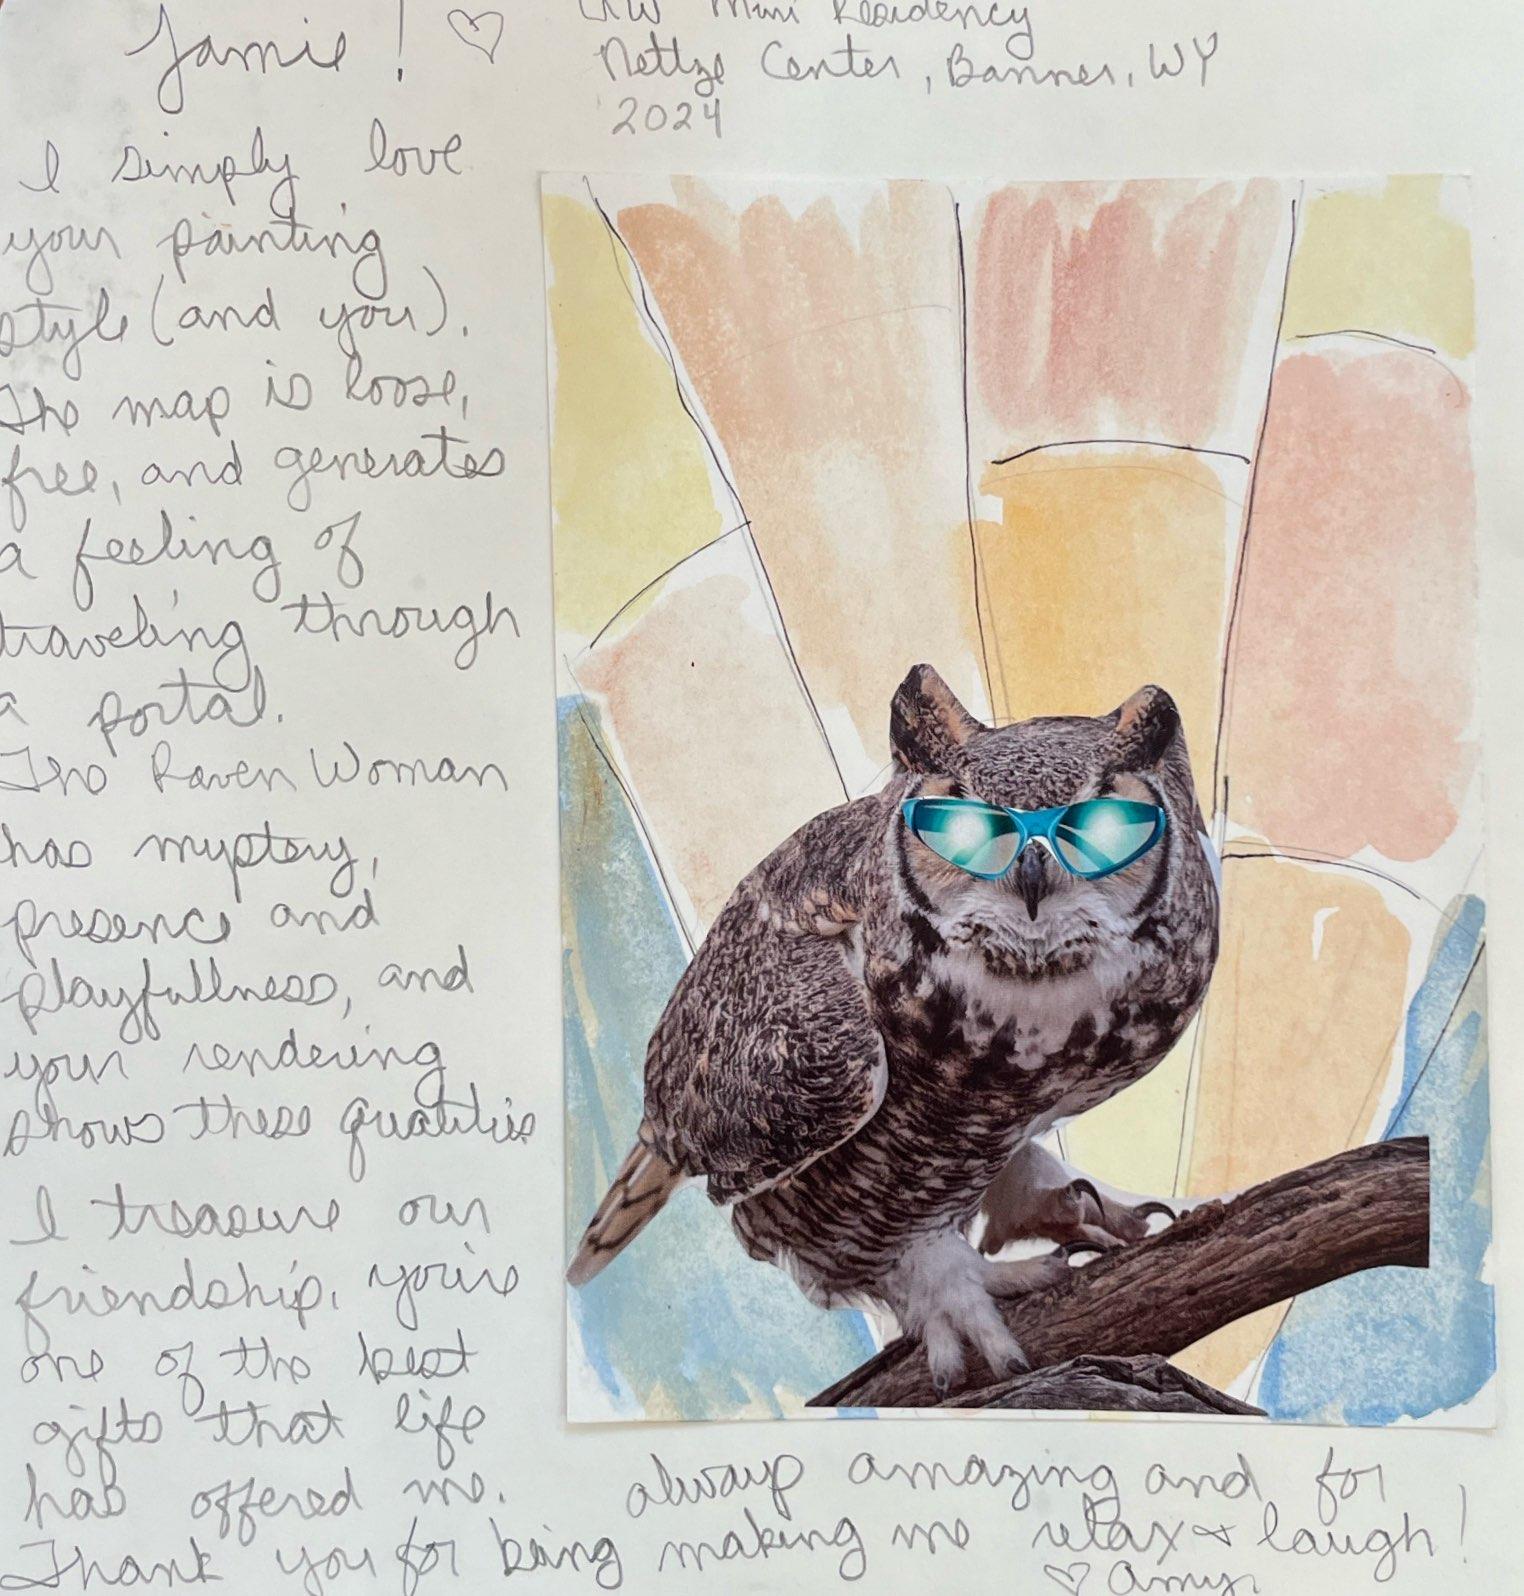 Jamie! ♡
Mini Residency
Center, Banner, WY
2024
I simply love
your painting
style (and you).
The map is loose,
free, and generates
a feeling of
traveling through
a portal.
The Raven Woman
has myptery,
presence and
playfullness, and
your rendering
shows these qualities
I treasure our
friendship. you're
one of the best
gifts that life
has offered me.
always amazing and for
Thank you for being making me relax + laugh!
♡ amy